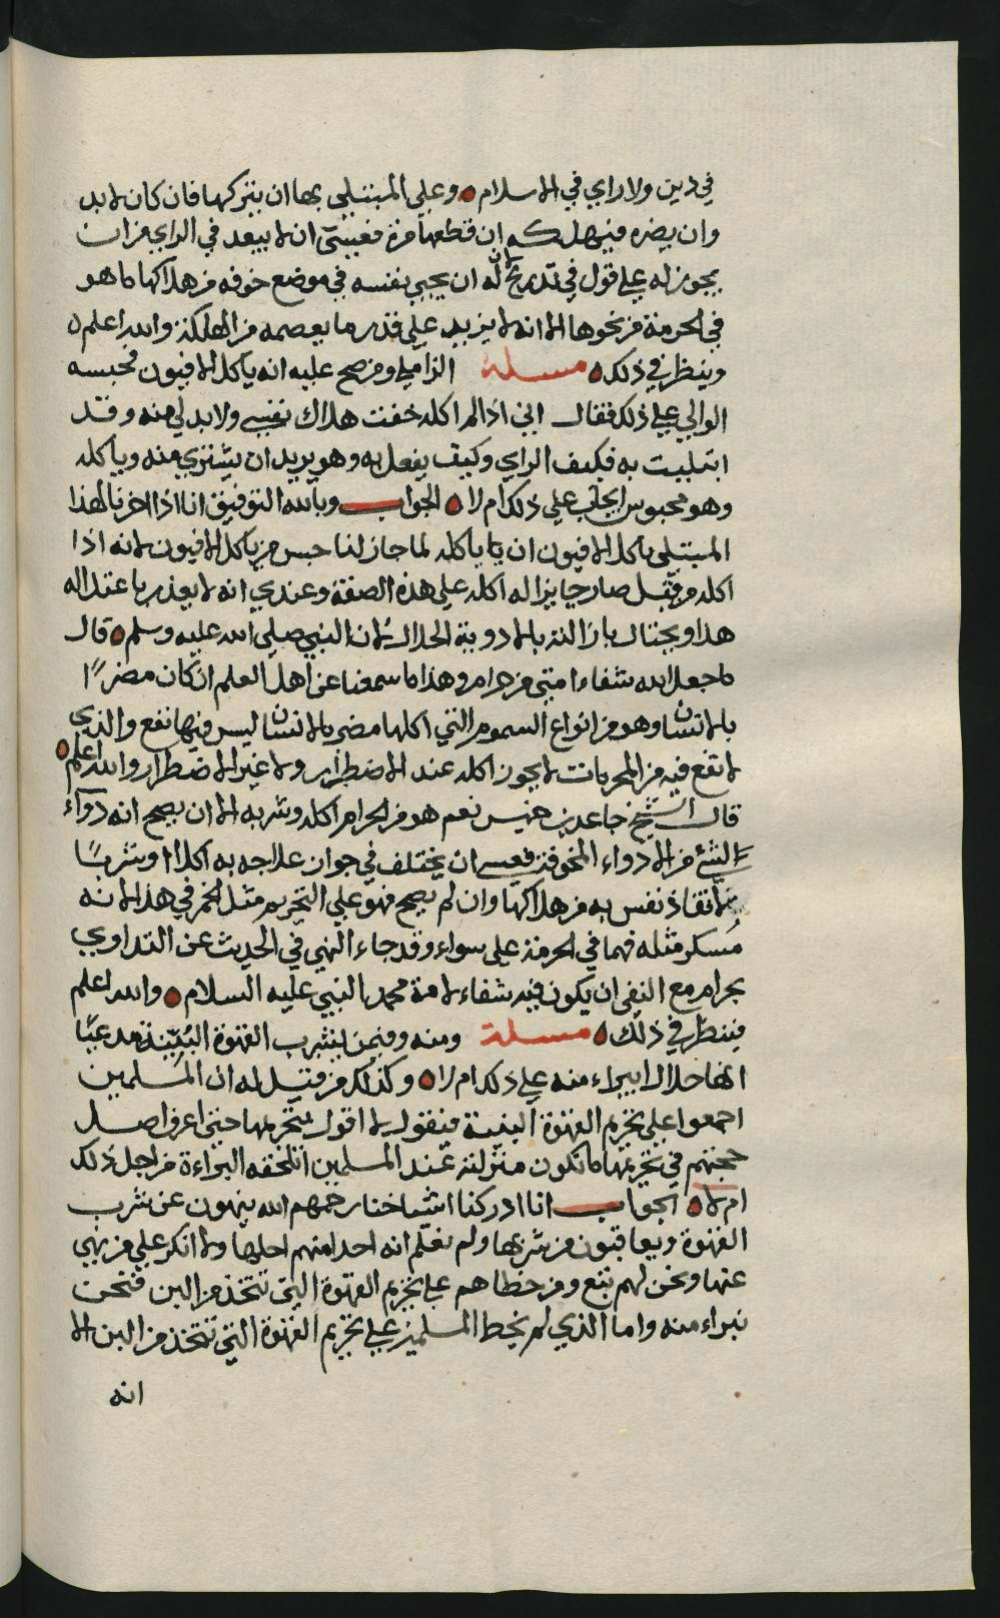 في دين ولا راي في الاسلام وعلي المبتلي بها ان يتركها فان كان لا بد
وان يضره فيهلكه ان قطعها مرة فعسى ان لا يبعد في الراي من ان
يجوز له علي قول في تدريج له ان يحيي نفسه في موضع خوفه من هلاكها ما هو
في الحرمة من نحوها الا انه لا يزيد علي قدر ما يعصمه من الهلكة والله اعلم
وينظر في ذلك مسئلة الزاملي ومن صح عليه انه ياكل الافيون فحبسه
الوالي علي ذلك فقال اني اذا لم اكله خفت هلاك نفسي ولا بد لي منه وقد
ابتليت به فكيف الراي وكيف يفعل به وهو يريد ان يشتري منه وياكله
وهو محبوس ايجاب علي ذلك ام لا الجواب وبالله التوفيق انا اذا اجزنا لهذا
المبتلى باكل الافيون ان ياكله لما جاز لنا حبس من ياكل الافيون لانه اذا
اكله من قبل صار جايزا له اكله علي هذه الصفة وعندي انه لا يعذر باعتلاله
هذا ويحتال بازالته بالادوية الحلال لان النبي صلي الله عليه وسلم قال
ما جعل الله شفاء امتي من حرام وهذا ما سمعنا عن اهل العلم ان كان مضرًا
بالانسان وهو من انواع السموم التي اكلها مضر بالانسان ليس فيها نفع والذي
لا نفع فيه من المحرمات لا يجوز اكله عند الاضطرار ولا غير الاضطرار والله اعلم
قال الشيخ جاعد بن خميس نعم هو من الحرام اكله وشربه الا ان يصح انه دواء
لشئ من الادواء المخوفة فعسى ان يختلف في جواز علاجه به اكلا او شربًا
لانقاذ نفس به من هلاكها وان لم يصح فهو علي التحريم مثل الخمر في هذا لانه
مُسكر مثله فهما في الحرمة علي سواء وقد جاء النهي في الحديث عن التداوي
بحرام مع النفي ان يكون فيه شفاء لامة محمد النبي عليه السلام والله اعلم
فينظر في ذلك مسئلة ومنه وفيمن يشرب القهوة البُنّيّة مدعيًا
انها حلال ايبراء منه علي ذلك ام لا وكذلك من قيل له ان المسلمين
اجمعوا علي تحريم القهوة البنية فيقول لا اقول بتحريمها حتى اعرف اصل
حجتهم في تحريمها ما تكون منزلته عند المسلمين اتلحقه البراءة من اجل ذلك
ام لا الجواب انا ادركنا اشياخنا رحمهم الله ينهون عن شرب
القهوة ويعاقبون من شربها ولم نعلم انه احدا منهم احلها ولا انكر علي من نهي
عنها ونحن لهم تبع ومن خطاهم علي تحريم القهوة التي تتخذ من البن فنحن
نبراء منه واما الذي لم يخط المسلمين علي تحريم القهوة التي تتخذ من البن الا
انه